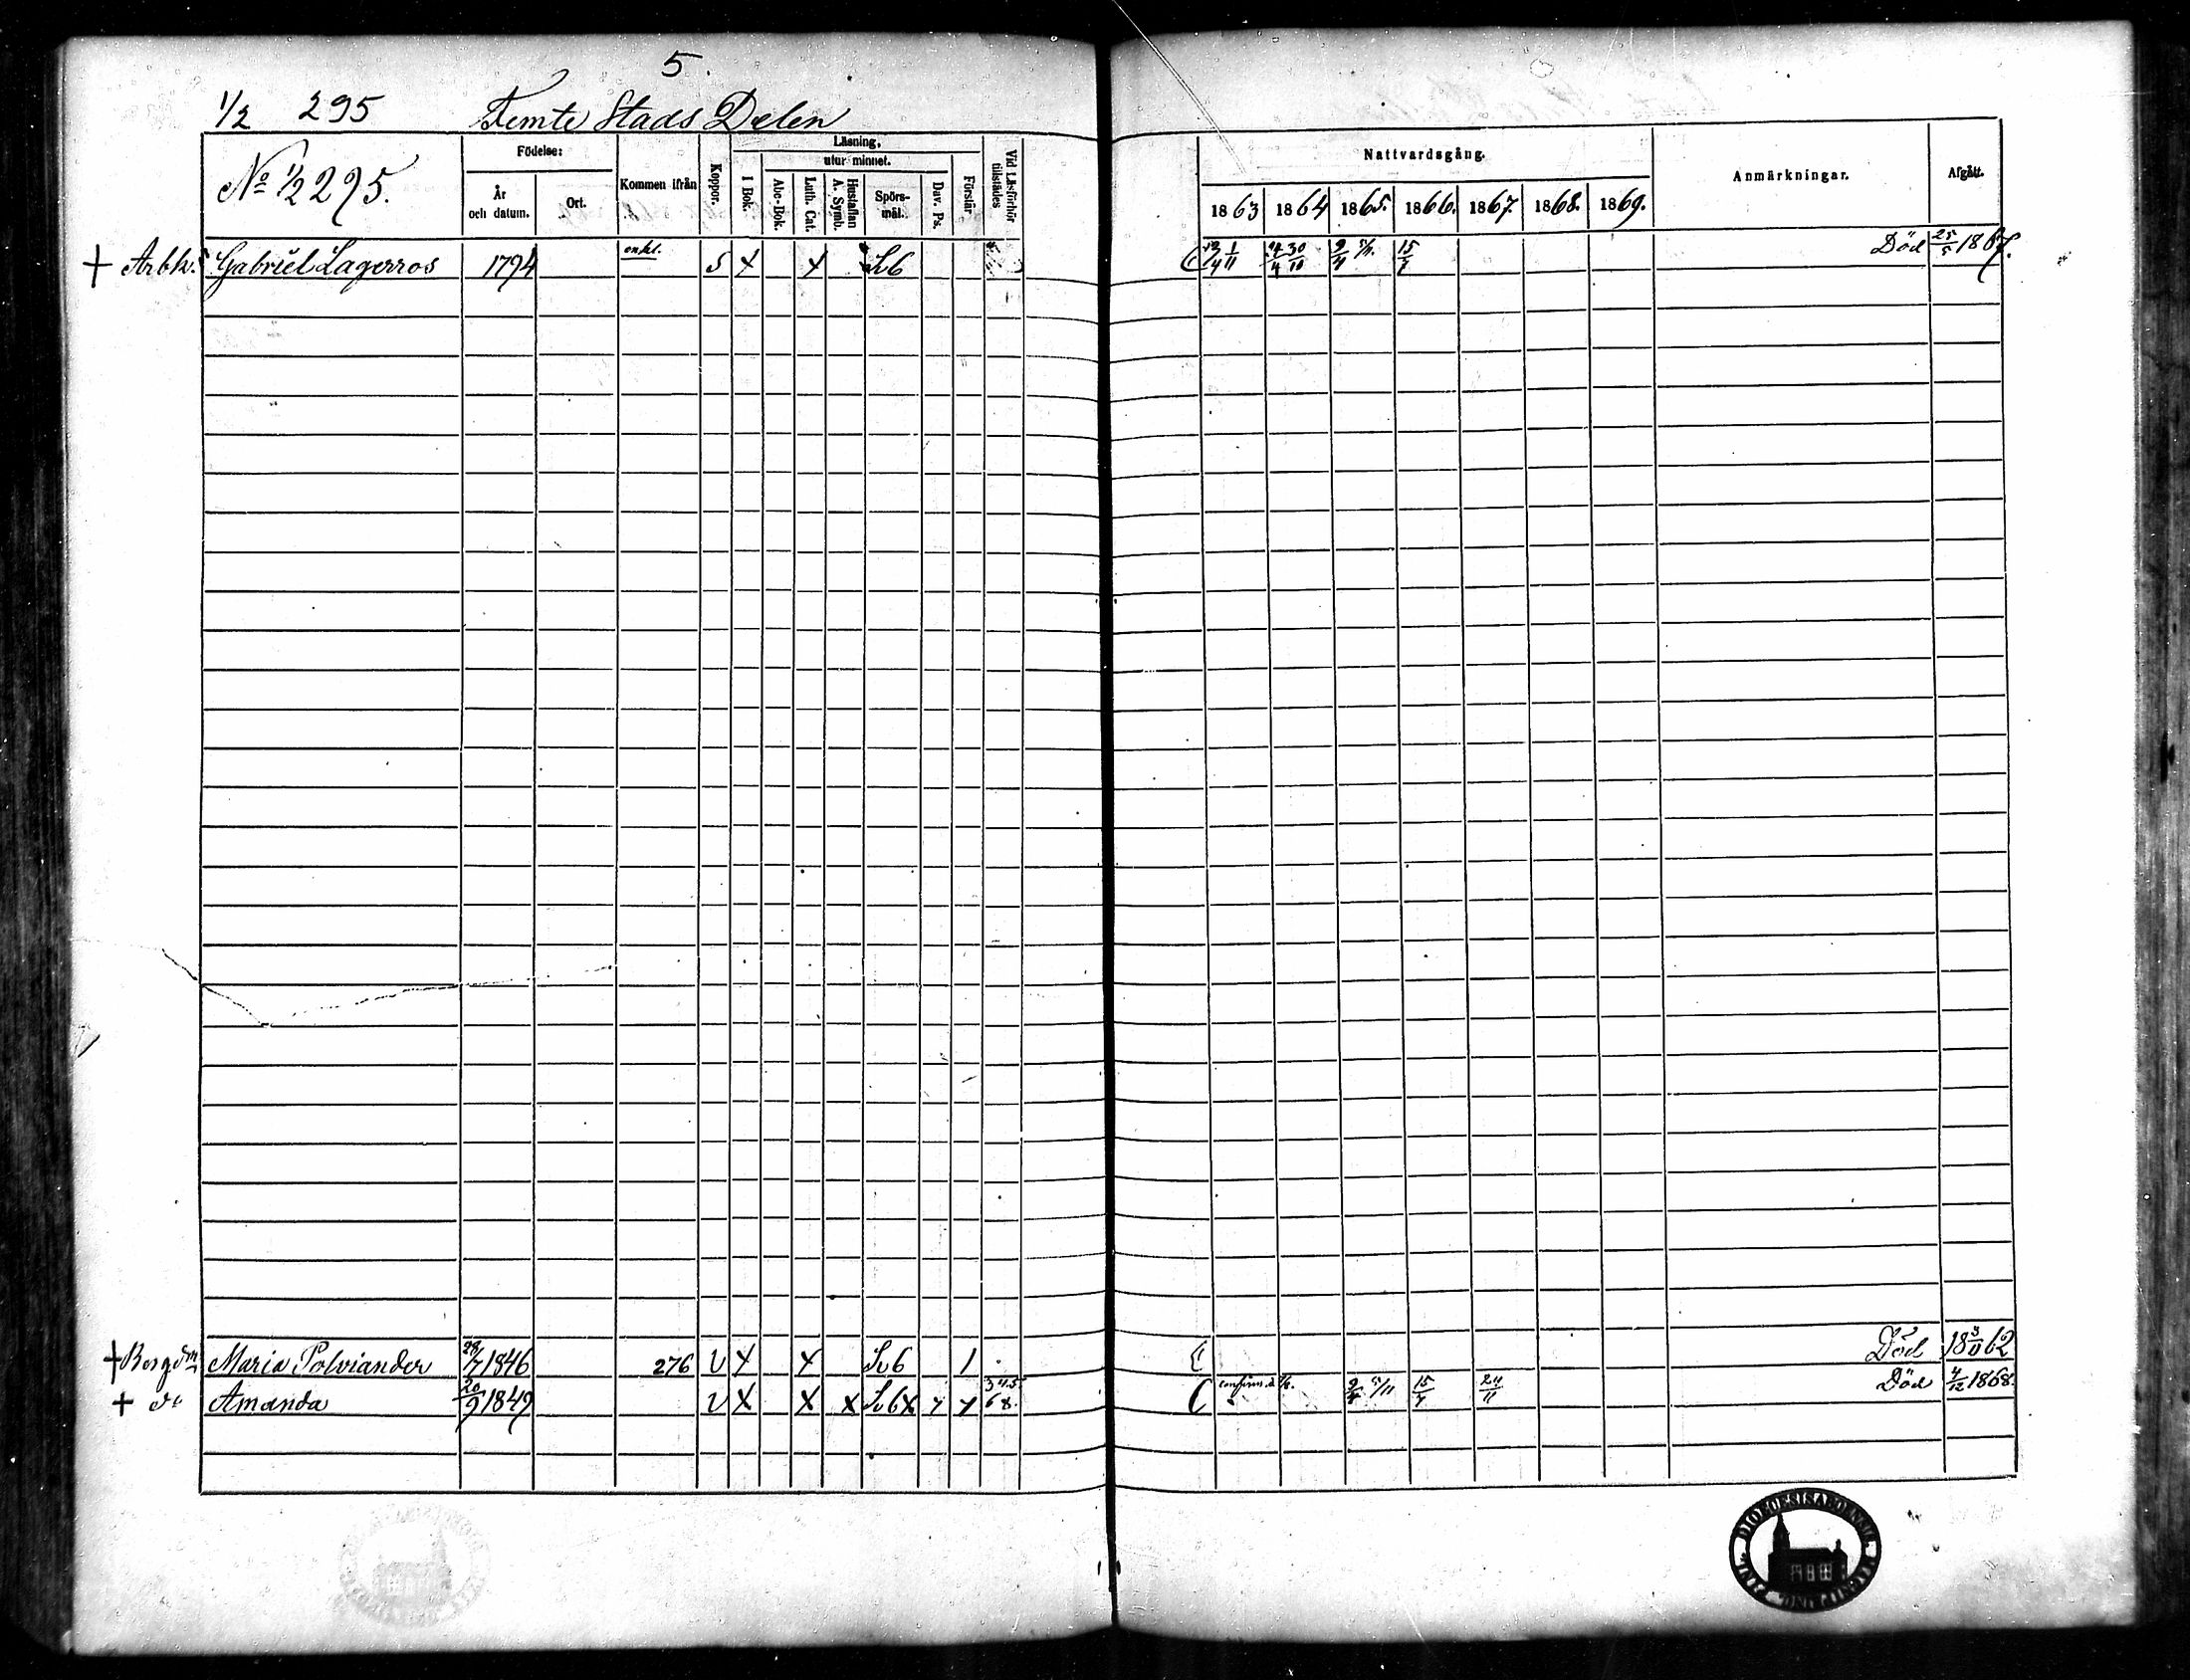 5.
1/2 295 Femte Stads Delen
No 1/2 295.
Födelse:
År och datum.
Ort.
Kommen ifrån
Koppor.
Läsning,
utur minnet.
I Bok.
Abc-Bok.
Luth. Cat.
Hustaflan A. Symb.
Spörs-mål.
Dav. Ps.
Förstår
Vid Läsförhör tillstädes
Nattvardsgång.
1863 1864 1865. 1866. 1867. 1868. 1869.
Anmärkningar.
Afgått.
+ Arbk. Gabriel Lagerros 1794 enkl. S X X Sv6 1/11 30/10 9/4 15/7 Död 25/5 1867.
+ Borgdr Maria Polviander 28/7 1846 276 V X X Sv6 1 Död 18 3/11 62
+ do Amanda 20/9 1849 V X X X Sv6X 9/4 5/11 15/7 24/11 Död 4/12 1868.